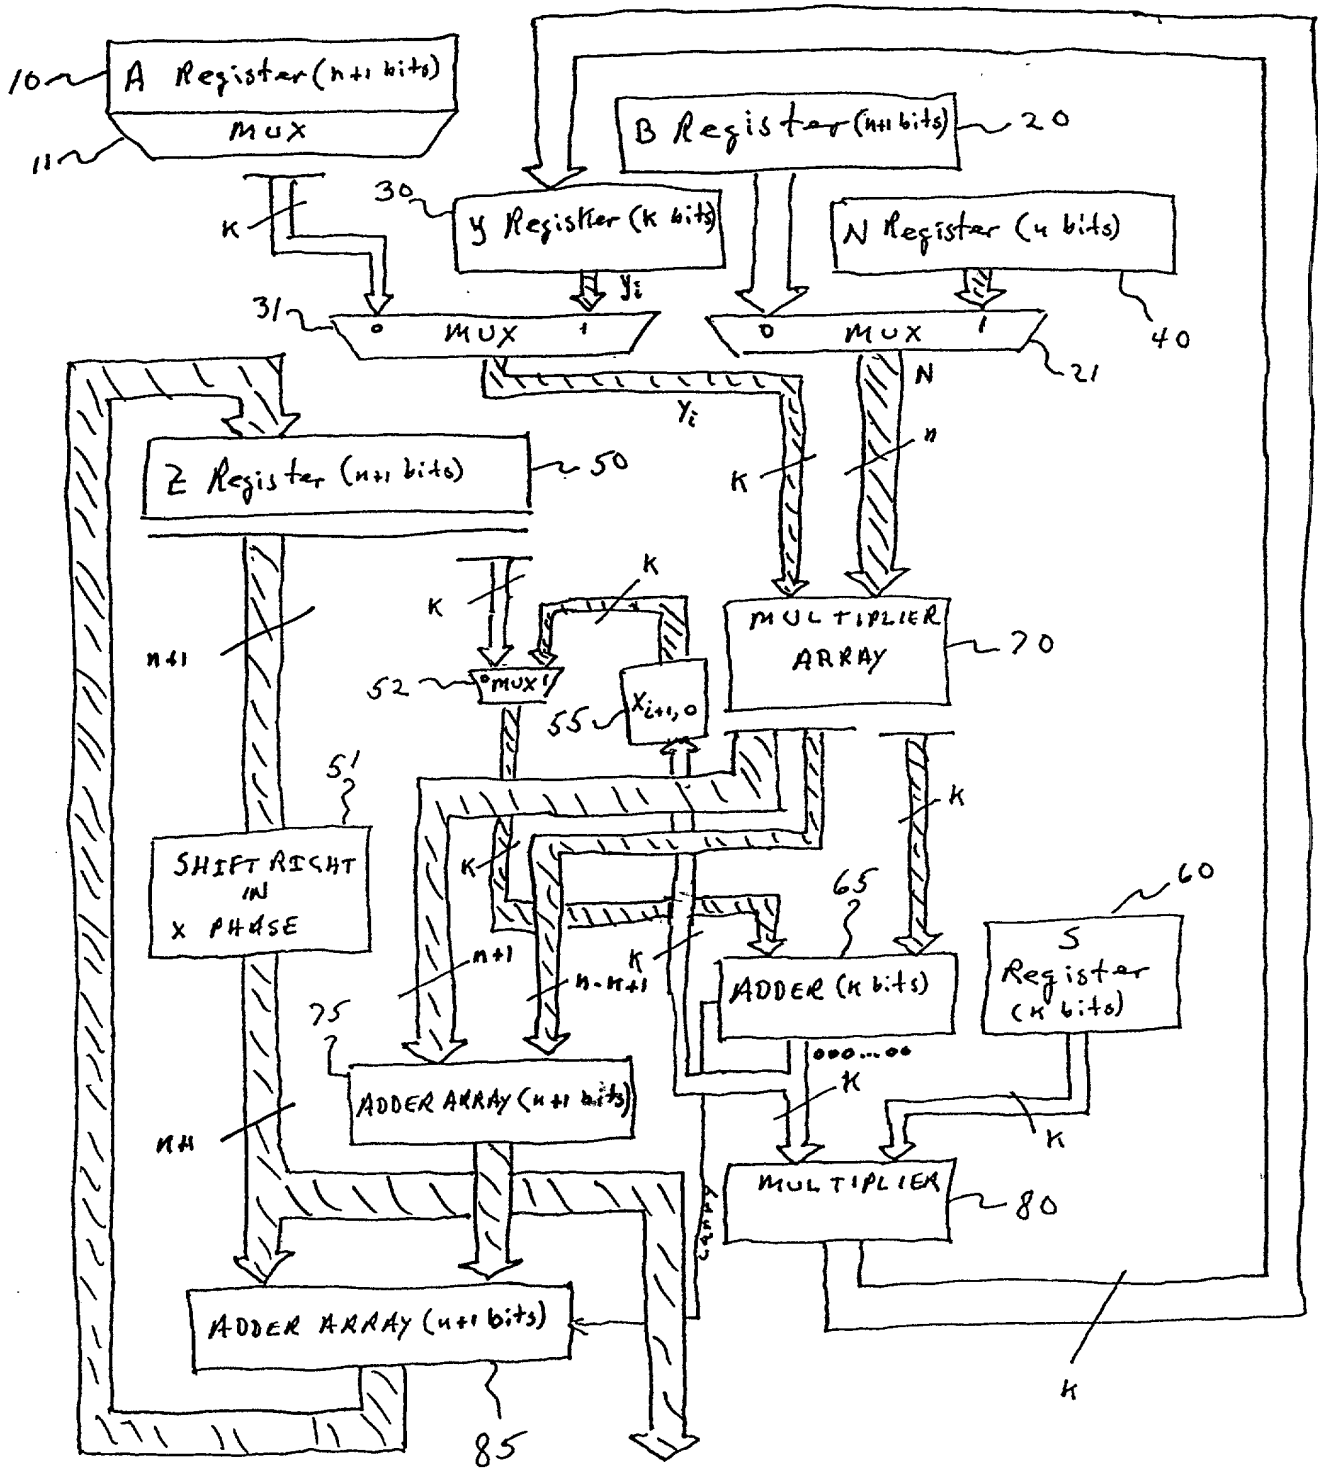 10 A Register (n+1 bits)
MUX
11
B Register (n+1 bits) 20
K
30
Y Register (k bits)
N Register (n bits)
yi
31
0 MUX 1
0 MUX 1
40
21
N
Yi
Z Register (n+1 bits) 50
K
n
K
K
MULTIPLIER
ARRAY
70
n+1
52
0 MUX 1
Xi+1,0
55
51
K
SHIFT RIGHT
IN
X PHASE
K
65
60
S
Register
(K bits)
n+1
n-k+1
K
ADDER (K bits)
75
000...00
ADDER ARRAY (n+1 bits)
K
K
n+1
MULTIPLIER
80
carry
ADDER ARRAY (n+1 bits)
K
85